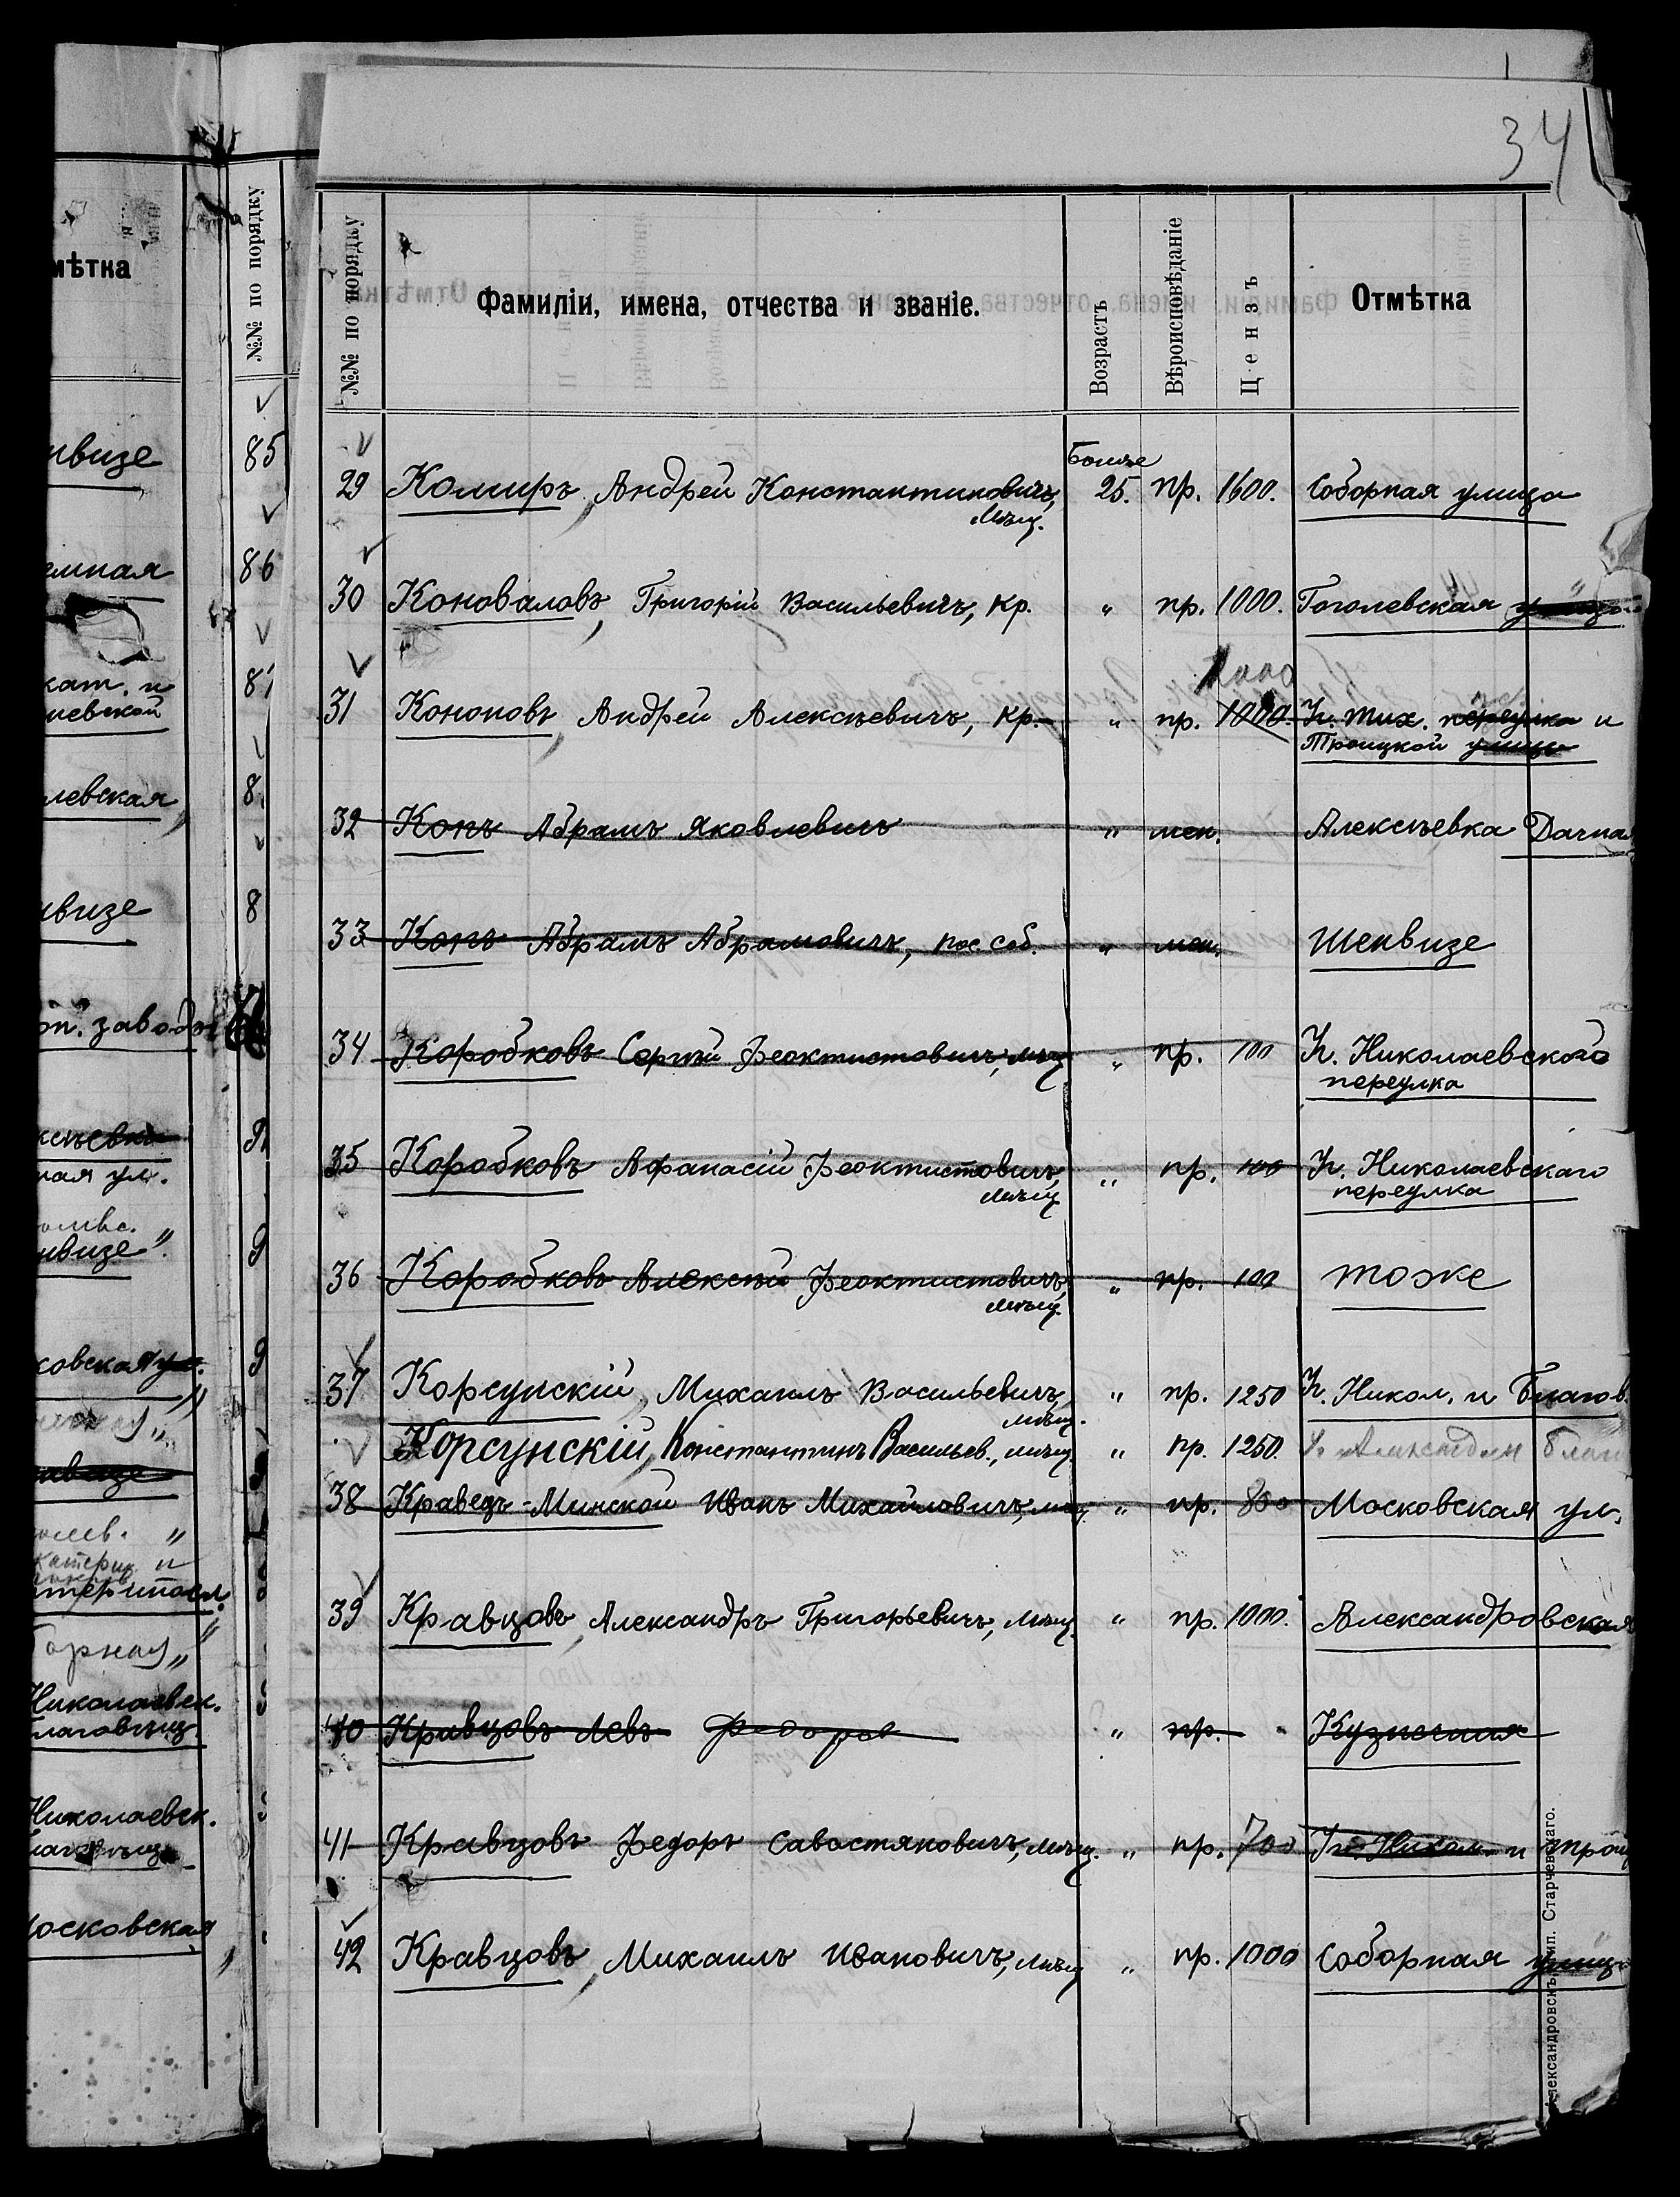 34
№№ по порядку
Фамиліи, имена, отчества и званіе.
Возрастъ
Вѣроисповѣданіе
Цензъ
Отмѣтка
29 Комиръ, Андрей Константиновичъ, мѣщ. Более 25. пр. 1600. Соборная улица
30 Коноваловъ, Григорій Васильевичъ, кр. " пр. 1000. Гоголевская улица
1000
31 Кононовъ, Андрей Алексѣевичъ, кр. " пр. 1000. Уг. Тих. переулка и
Троицкой улицы
32 Конъ Абрамъ Яковлевичъ " мен. Алексѣевка Дачная
33 Конъ Абрамъ Абрамовичъ, пос. соб. " мен. Шенвизе
34 Коробковъ Сергѣй Феоктистовичъ, мѣщ " пр. 100 Уг. Николаевского
переулка
35 Коробковъ Афанасій Феоктистовичъ, мѣщ " пр. 100 Уг. Николаевскаго
переулка
36 Коробковъ Алексѣй Феоктистовичъ, мѣщ. " пр. 100 тоже
37 Корсунскій, Михаилъ Васильевичъ, мѣщ. " пр. 1250 Уг. Никол. и Благов.
Корсунскій, Константинъ Васильев., мѣщ. " пр. 1250.
38 Кравецъ-Минской Иванъ Михайловичъ, мѣщ. " пр. 800 Московская ул.
39 Кравцовъ, Александръ Григорьевичъ, мѣщ. " пр. 1000. Александровская
40 Кравцовъ Левъ " пр. Кузнечная
41 Кравцовъ Федоръ Савостяновичъ, мѣщ. " пр. 700 Уг. Никол. и Троиц
42 Кравцовъ, Михаилъ Ивановичъ, мѣщ " пр. 1000 Соборная улица
Александровскъ, тип. Старчевскаго.
мѣтка
№№ по порядку
нвизе 85
емная 86
кат. и
левская
нвизе
оп. заводъ
ная ул.
нвизе".
Горная "
Николаевск.
Николаевск.
Московская